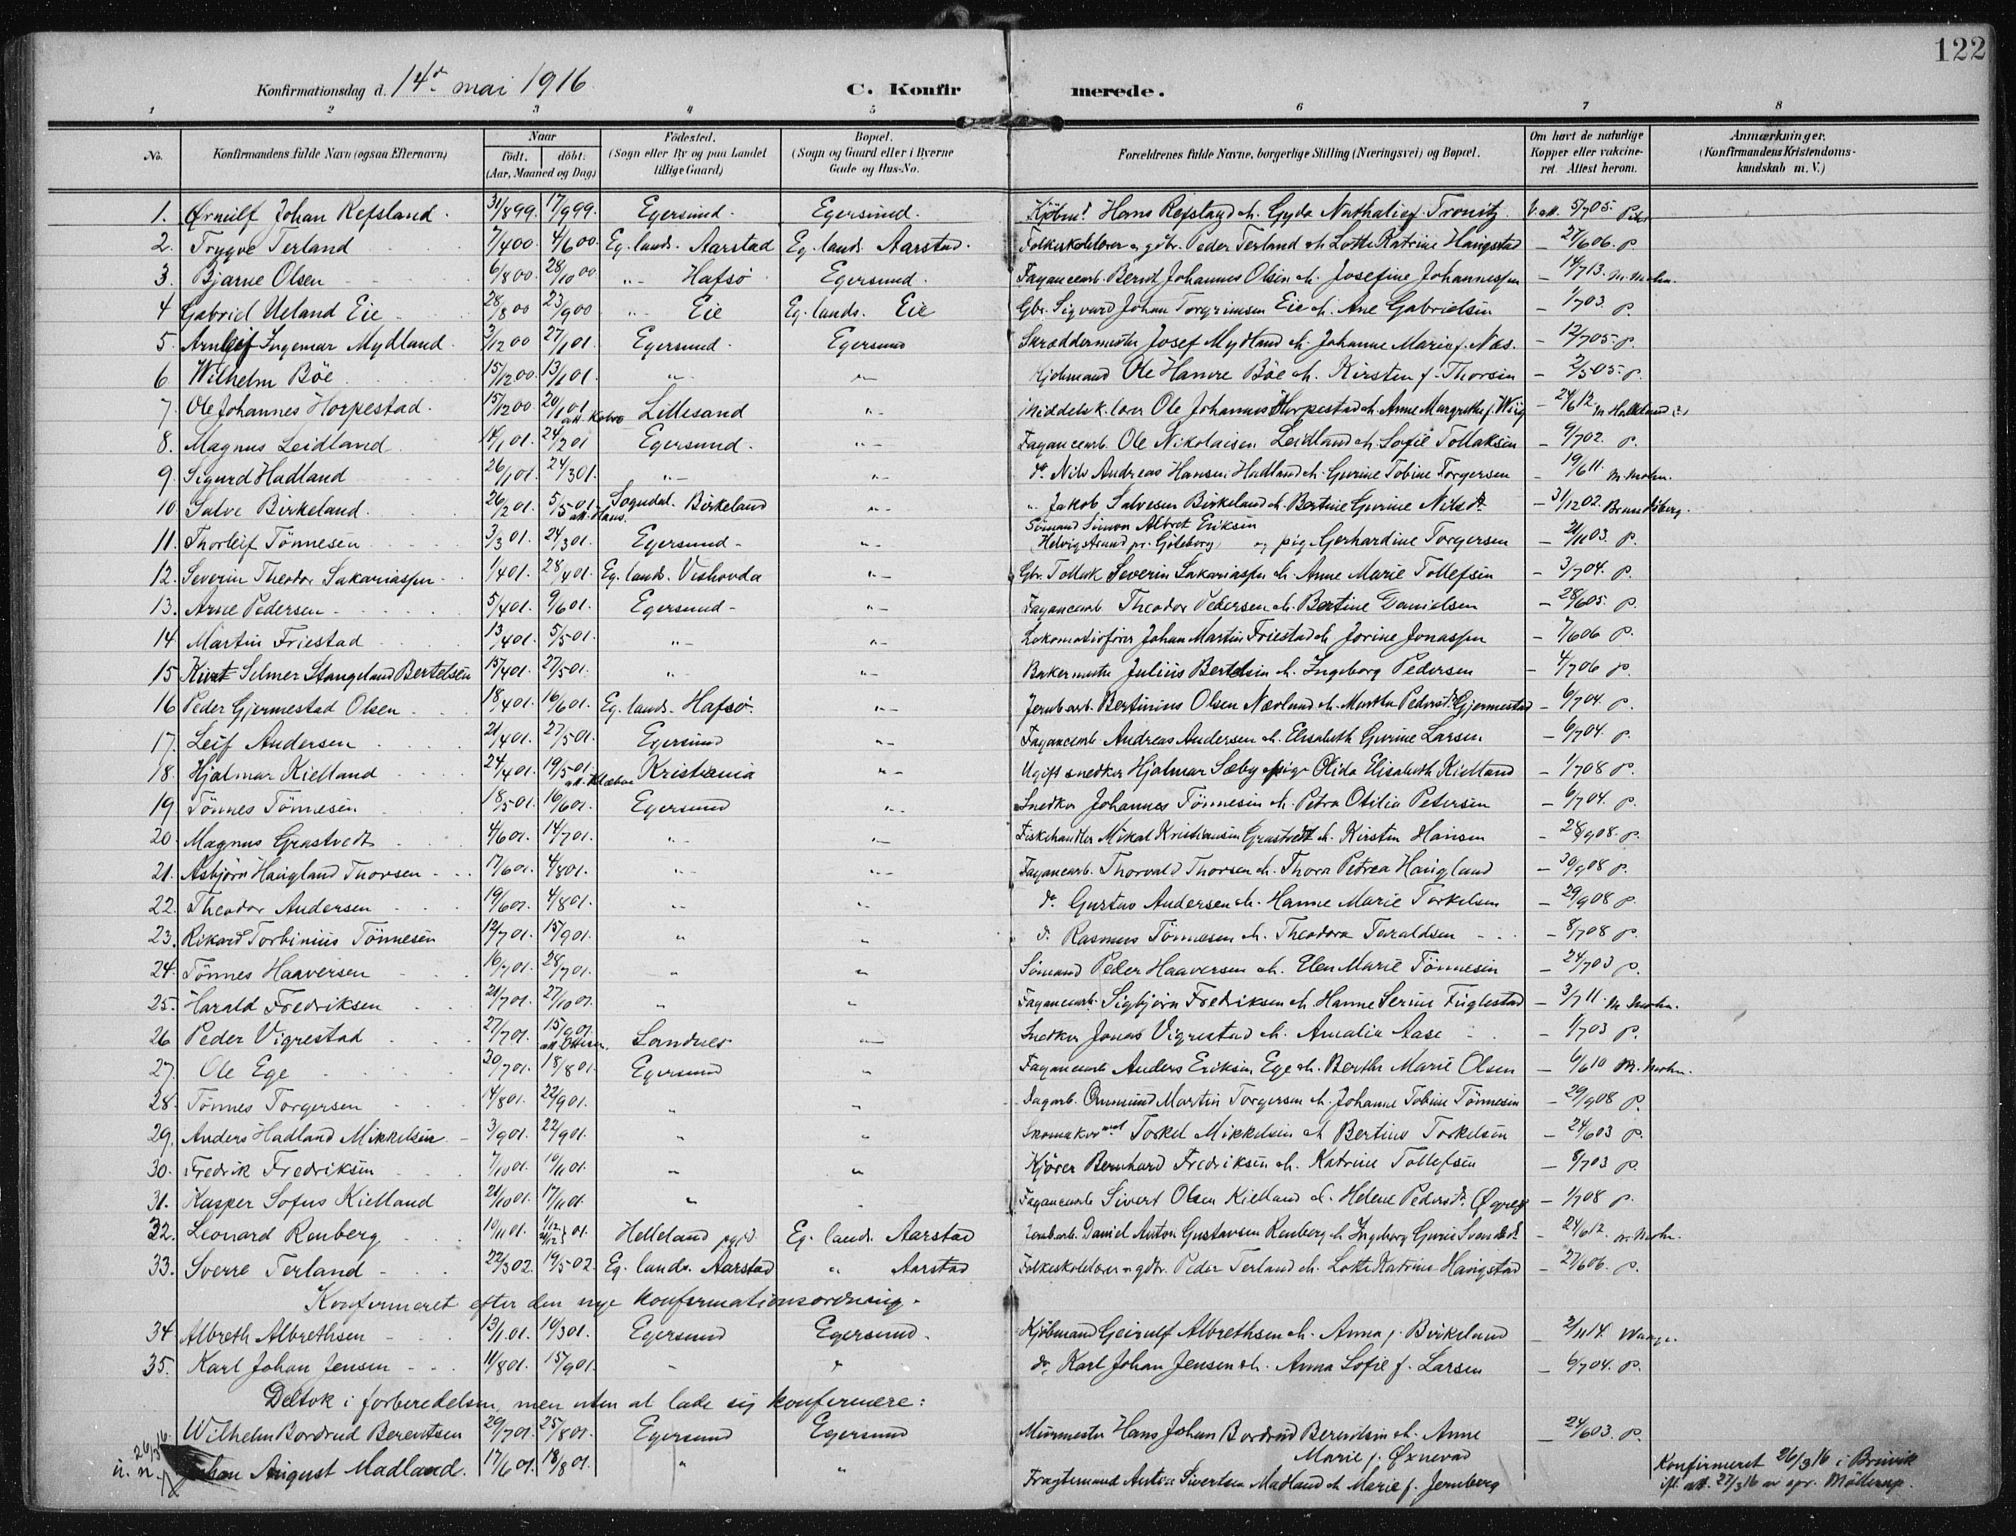 122
Konfirmationsdag d. 14de mai 1916 C. Konfirmerede.
1 2 3 4 5 6 7 8
No. Konfirmandens fulde Navn (ogsaa Efternavn) Naar født. døbt. (Aar, Maaned og Dag) Fødested. (Sogn eller By og paa Landet tillige Gaard) Bopæl. (Sogn og Gaard eller i Byerne Gade og Hus-No. Forældrenes fulde Navne, borgerlige Stilling (Næringsvei) og Bopæl. Om havt de naturlige Kopper eller vakcineret. Attest herom. Anmærkninger. (Konfirmandens Kristendomskundskab m. V.)
1. Ørnulf Johan Refsland. 31/8 99. 17/9 99. Egersund. Egersund. Kjøbmd Hans Refsland & Gyda Nathalie f. V. att. 5/7 05.
2. Trygve Terland 7/4 00. 4/6 00. Eg. lands. Aarstad Eg. lands. Aarstad. Folkeskolelærer og gbr. Peder Terland & Lotte Katrine Haugstad - 27/6 06. P.
3. Bjarne Olsen 6/8 00. 28/10 00 " - Hafsø Egersund. Fayancearb. Berndt Johannes Olsen & Josefine Johannessen - 14/7 13. M. Mohn.
4 Gabriel Ueland Eie 28/8 00 23/9 00 " - Eie Eg. lands. Eie Gbr. Sigvard Johan Torgrimsen Eie & Ane Gabrielsen - 1/7 03. P.
5. Arnleif Ingemar Mydland. 3/12 00 27/1 01. Egersund. Egersund Skræddermester Josef Mydland & Johanne Marie f. Næs. - 12/7 05. P.
6. Wilhelm Bøe 15/12 00. 13/1 01. " - " - Kjøbmand Ole Hamre Bøe & Kirsten f. Thorsen - 2/5 05. P.
7. Ole Johannes Horpestad. 15/12 00 20/1 01 Lillesand " - Middelsk. lærer Ole Johannes Horpestad & Anne Margrethe f. Wiig - 24/6 12.
8. Magnus Leidland 14/1 01. 24/2 01 Egersund. " - Fayancearb. Ole Nikolaisen Leidland & Sofie Tollaksen - 9/7 02. P.
9. Sigurd Hadland 26/1 01. 24/3 01. " - do. Nils Andreas Hansen Hadland & Gurine Tobine Torgersen - 19/6 11. M. Mohn.
10. Salve Birkeland. 26/2 01. 5/5 01. Sogndal. Birkeland " - " Jakob Salvesen Birkeland & Bertine Gurine Nilsdt. - 31/12 02.
11. Thorleif Tönnesen 3/3 01. 24/3 01. Egersund - " - Sömand Simon Albret Eriksen (Helvigstrand pr. Göteborg) og pige Gerhardine Torgersen - 21/11 03. P.
12. Severin Theodor Sakariassen 1/4 01. 28/4 01. Eg. lands. Vishovda " - Gbr. Tollak Severin Sakariassen & Anne Marie Tollefsen - 3/7 04. P.
13. Arne Pedersen 5/4 01. 9/6 01. Egersund - " - Fayancearb. Theodor Pedersen & Bertine Danielsen - 28/6 05. P.
14 Martin Friestad 13/4 01. 5/5 01. " - " - Lokomotivfører Johan Martin Friestad & Jorine Jonassen - 7/6 06 P.
15 Kurt Selmer Stangeland Bertelsen 15/4 01. 27/5 01. " - " - Bakermester Julius Bertelsen & Ingeborg Pedersen - 4/7 06 P.
16 Peder Gjermestad Olsen 18/4 01. 16/6 01. Eg. lands. Hafsø. " - Jernb. arb. Bertinius Olsen Nærland & Martha Pedersdt. Gjermestad - 6/7 04. P.
17. Leif Andersen 21/4 01. 27/5 01. Egersund " - Fayancearb. Andreas Andersen & Elisabeth Gurine Larsen - 6/7 04. P.
18. Hjalmar Kielland 24/4 01. 19/5 01. Kristiania " - Ugift snedker Hjalmar Sæby & pige Olida Elisabeth Kielland - 1/7 08 P.
19 Tönnes Tönnesen 18/5 01. 16/6 01. Egersund " - Snedker Johannes Tönnesen & Petra Otilia Petersen - 6/7 04. P.
20. Magnus Grastvedt 4/6 01. 14/7 01. " - " - Fiskehandler Mikal Kristiansen Grastvedt & Kirsten Hansen - 28/9 08. P.
21. Asbjørn Haugland Thorsen 17/6 01. 4/8 01. " - " - Fayancearb. Thorvald Thorsen & Thora Petrea Haugland - 30/9 08 P.
22. Theodor Andersen 19/6 01. 4/8 01. " - " - do. Gustav Andersen & Hanne Marie Torkelsen - 29/9 08 P.
23. Rikard Torbinius Tönnesen 12/7 01. 15/9 01. " " - do. Rasmus Tönnesen & Theodora Taraldsen - 8/7 08 P.
24. Tönnes Haaversen 16/7 01. 28/7 01. " " - Sömand Peder Haaversen & Elen Marie Tönnesen - 24/7 03 P.
25. Harald Fredriksen 21/7 01. 27/10 01. " " Fayancearb. Sigbjørn Fredriksen & Hanne Serine Fuglestad - 3/7 11. M. Mohn.
26 Peder Vigrestad 27/7 01. 15/9 01. Sandnes " - Snedker Jonas Vigrestad & Amalia Aase - 1/7 03 P.
27. Ole Ege 30/7 01. 18/8 01. Egersund " Fayancearb Anders Eriksen Ege & Berthe Marie Olsen - 6/6 10 M. Mohn.
28. Tönnes Torgersen 14/8 01. 22/9 01. " " Dagarb. Ommund Martin Torgersen & Johanne Tobine Tönnesen - 29/9 08 P.
29. Anders Hadland Mikkelsen 3/9 01. 22/9 01. " " Skomakermst Torkel Mikkelsen & Bertine Torkelsen - 24/6 03 P.
30. Fredrik Fredriksen 7/10 01. 10/11 01. " " Kjører Bernhard Fredriksen & Katrine Tollefsen - 8/7 03 P.
31. Kasper Sofus Kielland 21/10 01. 17/11 01. " Fayancearb Sivert Olsen Kielland & Helene Pedersdt. - 1/7 08 P.
32. Leonard Renberg 10/11 01. Helleland pgjd. Eg. lands. Aarstad Jernbarb. Daniel Anton Gustavsen Renberg & Ingeborg Gurie Svensdt. - 24/6 12. M. Mohn.
33. Sverre Terland 22/3 02. 19/5 02. Eg. lands. Aarstad " Aarstad Folkeskolelærer og gbr. Peder Terland & Lotte Katrine Haugstad - 27/6 06. P.
Konfirmeret efter den nye konfirmationsordning.
34 Albreth Albrethsen 13/1 01. 10/3 01. Egersund Egersund. Kjøbmand Geirulf Albrethsen & Anna f. Birkeland - 2/11 14
35. Karl Johan Jensen 11/8 01. 15/9 01. " " do. Karl Johan Jensen & Anna Sofie f. Larsen - 6/7 04. P.
Deltok i forberedelsen, men uten at lade sig konfirmere:
Wilhelm Bordrud Berentsen 29/7 01. 25/8 01. Egersund Egersund Murmester Hans Johan Bordrud Berentsen & Anne Marie f. Øxnevad - 24/6 03. P.
26/3 16. Johan August Madland. 17/6 01. 18/8 01. " " Fragtemand Anton Sivertsen Madland & Marie f. Jernberg Konfirmeret 26/3 16 i Breivik ifl. att. 27/3 16 av spr. Møllerup.